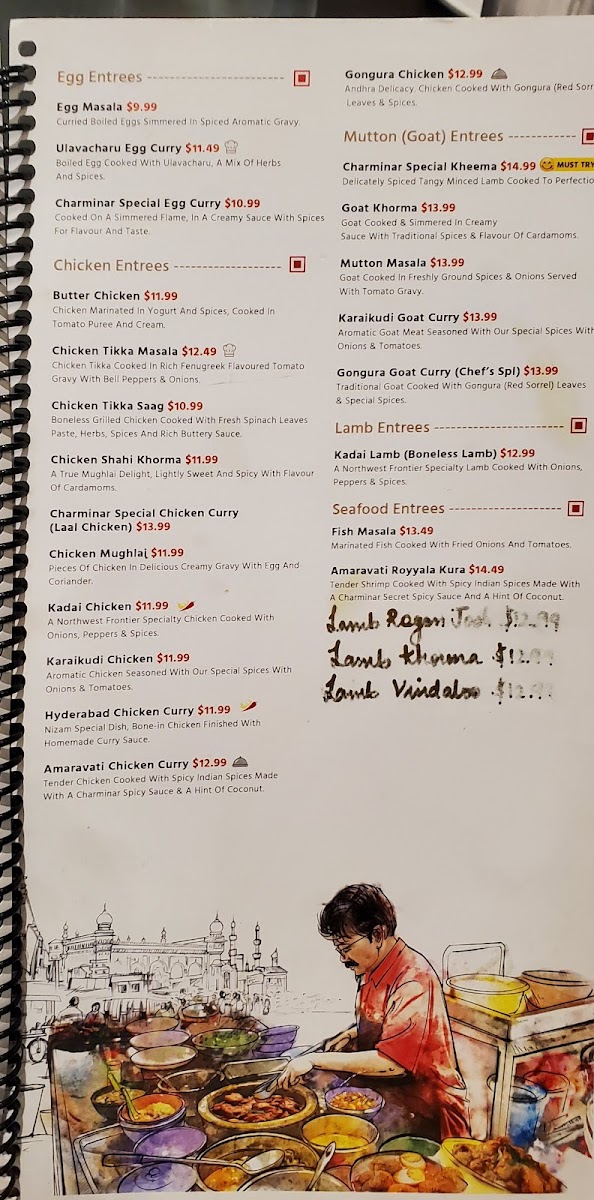 Egg Entrees
Egg Masala $9.99
Curried Boiled Eggs Simmered In Spiced Aromatic Gravy.
Ulavacharu Egg Curry $11.49
Boiled Egg Cooked With Ulavacharu, A Mix Of Herbs
And Spices.
Charminar Special Egg Curry $10.99
Cooked On A Simmered Flame, In A Creamy Sauce With Spices
For Flavour And Taste.
Chicken Entrees
Butter Chicken $11.99
Chicken Marinated In Yogurt And Spices, Cooked In
Tomato Puree And Cream.
Chicken Tikka Masala $12.49
Chicken Tikka Cooked In Rich Fenugreek Flavoured Tomato
Gravy With Bell Peppers & Onions.
Chicken Tikka Saag $10.99
Boneless Grilled Chicken Cooked With Fresh Spinach Leaves
Paste, Herbs, Spices And Rich Buttery Sauce.
Chicken Shahi Khorma $11.99
A True Mughlai Delight, Lightly Sweet And Spicy With Flavour
Of Cardamoms.
Charminar Special Chicken Curry
(Laal Chicken) $13.99
Chicken Mughlai $11.99
Pieces Of Chicken In Delicious Creamy Gravy With Egg And
Coriander.
Kadai Chicken $11.99
A Northwest Frontier Specialty Chicken Cooked With
Onions, Peppers & Spices.
Karaikudi Chicken $11.99
Aromatic Chicken Seasoned With Our Special Spices With
Onions & Tomatoes.
Hyderabad Chicken Curry $11.99
Nizam Special Dish, Bone-in Chicken Finished With
Homemade Curry Sauce.
Amaravati Chicken Curry $12.99
Tender Chicken Cooked With Spicy Indian Spices Made
With A Charminar Spicy Sauce & A Hint Of Coconut.
Gongura Chicken $12.99
Andhra Delicacy. Chicken Cooked With Gongura (Red Sorr
Leaves & Spices.
Mutton (Goat) Entrees
Charminar Special Kheema $14.99 MUST TRY
Delicately Spiced Tangy Minced Lamb Cooked To Perfectio
Goat Khorma $13.99
Goat Cooked & Simmered In Creamy
Sauce With Traditional Spices & Flavour Of Cardamoms.
Mutton Masala $13.99
Goat Cooked In Freshly Ground Spices & Onions Served
With Tomato Gravy.
Karaikudi Goat Curry $13.99
Aromatic Goat Meat Seasoned With Our Special Spices With
Onions & Tomatoes.
Gongura Goat Curry (Chef's Spl) $13.99
Traditional Goat Cooked With Gongura (Red Sorrel) Leaves
& Special Spices.
Lamb Entrees
Kadai Lamb (Boneless Lamb) $12.99
A Northwest Frontier Specialty Lamb Cooked With Onions,
Peppers & Spices.
Seafood Entrees
Fish Masala $13.49
Marinated Fish Cooked With Fried Onions And Tomatoes.
Amaravati Royyala Kura $14.49
Tender Shrimp Cooked With Spicy Indian Spices Made With
A Charminar Secret Spicy Sauce And A Hint Of Coconut.
Lamb Rogan Josh $12.99
Lamb Khorma $12.99
Lamb Vindaloo $12.99